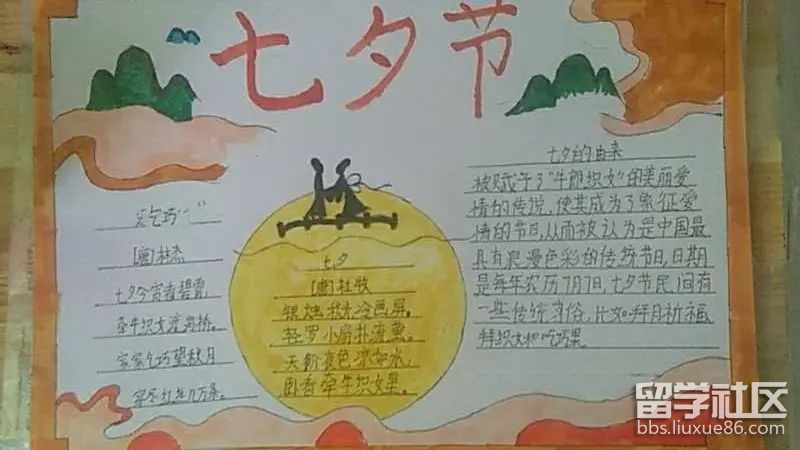 七夕节
乞巧
[唐]林杰
七夕今宵看碧霄
牵牛织女渡河桥。
家家乞巧望秋月
穿尽红丝几万条。
七夕
[唐]杜牧
银烛秋光冷画屏。
轻罗小扇扑流萤。
天阶夜色凉如水,
卧看牵牛织女星。
七夕的由来
被赋予了"牛郎织女"的美丽爱
情的传说,使其成为了象征爱
情的节日,从而被认为是中国最
具有浪漫色彩的传统节日,日期
是每年农历7月7日,七夕节民间有
一些传统习俗,比如拜月祈福
拜织女和吃巧果。
留学社区
bbs.liuxue86.com